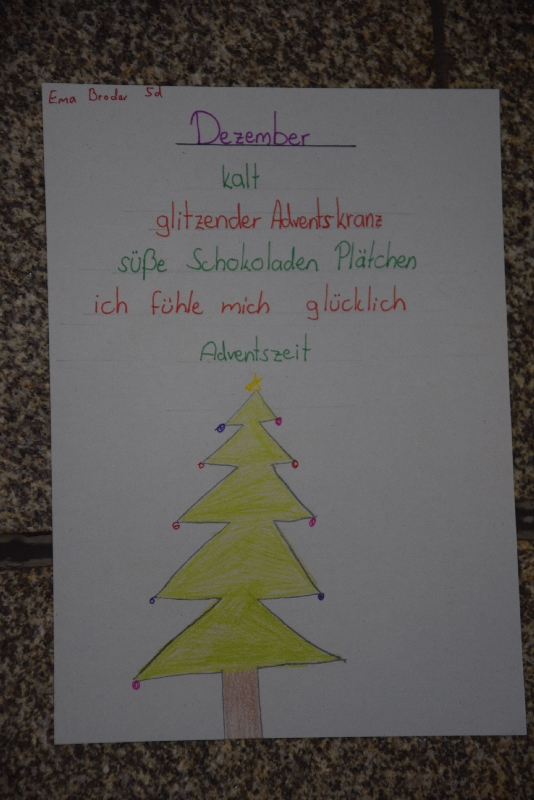 Ema Broder 5d
Dezember
kalt
glitzender Adventskranz
süße Schokoladen Plätchen
ich fühle mich glücklich
Adventszeit